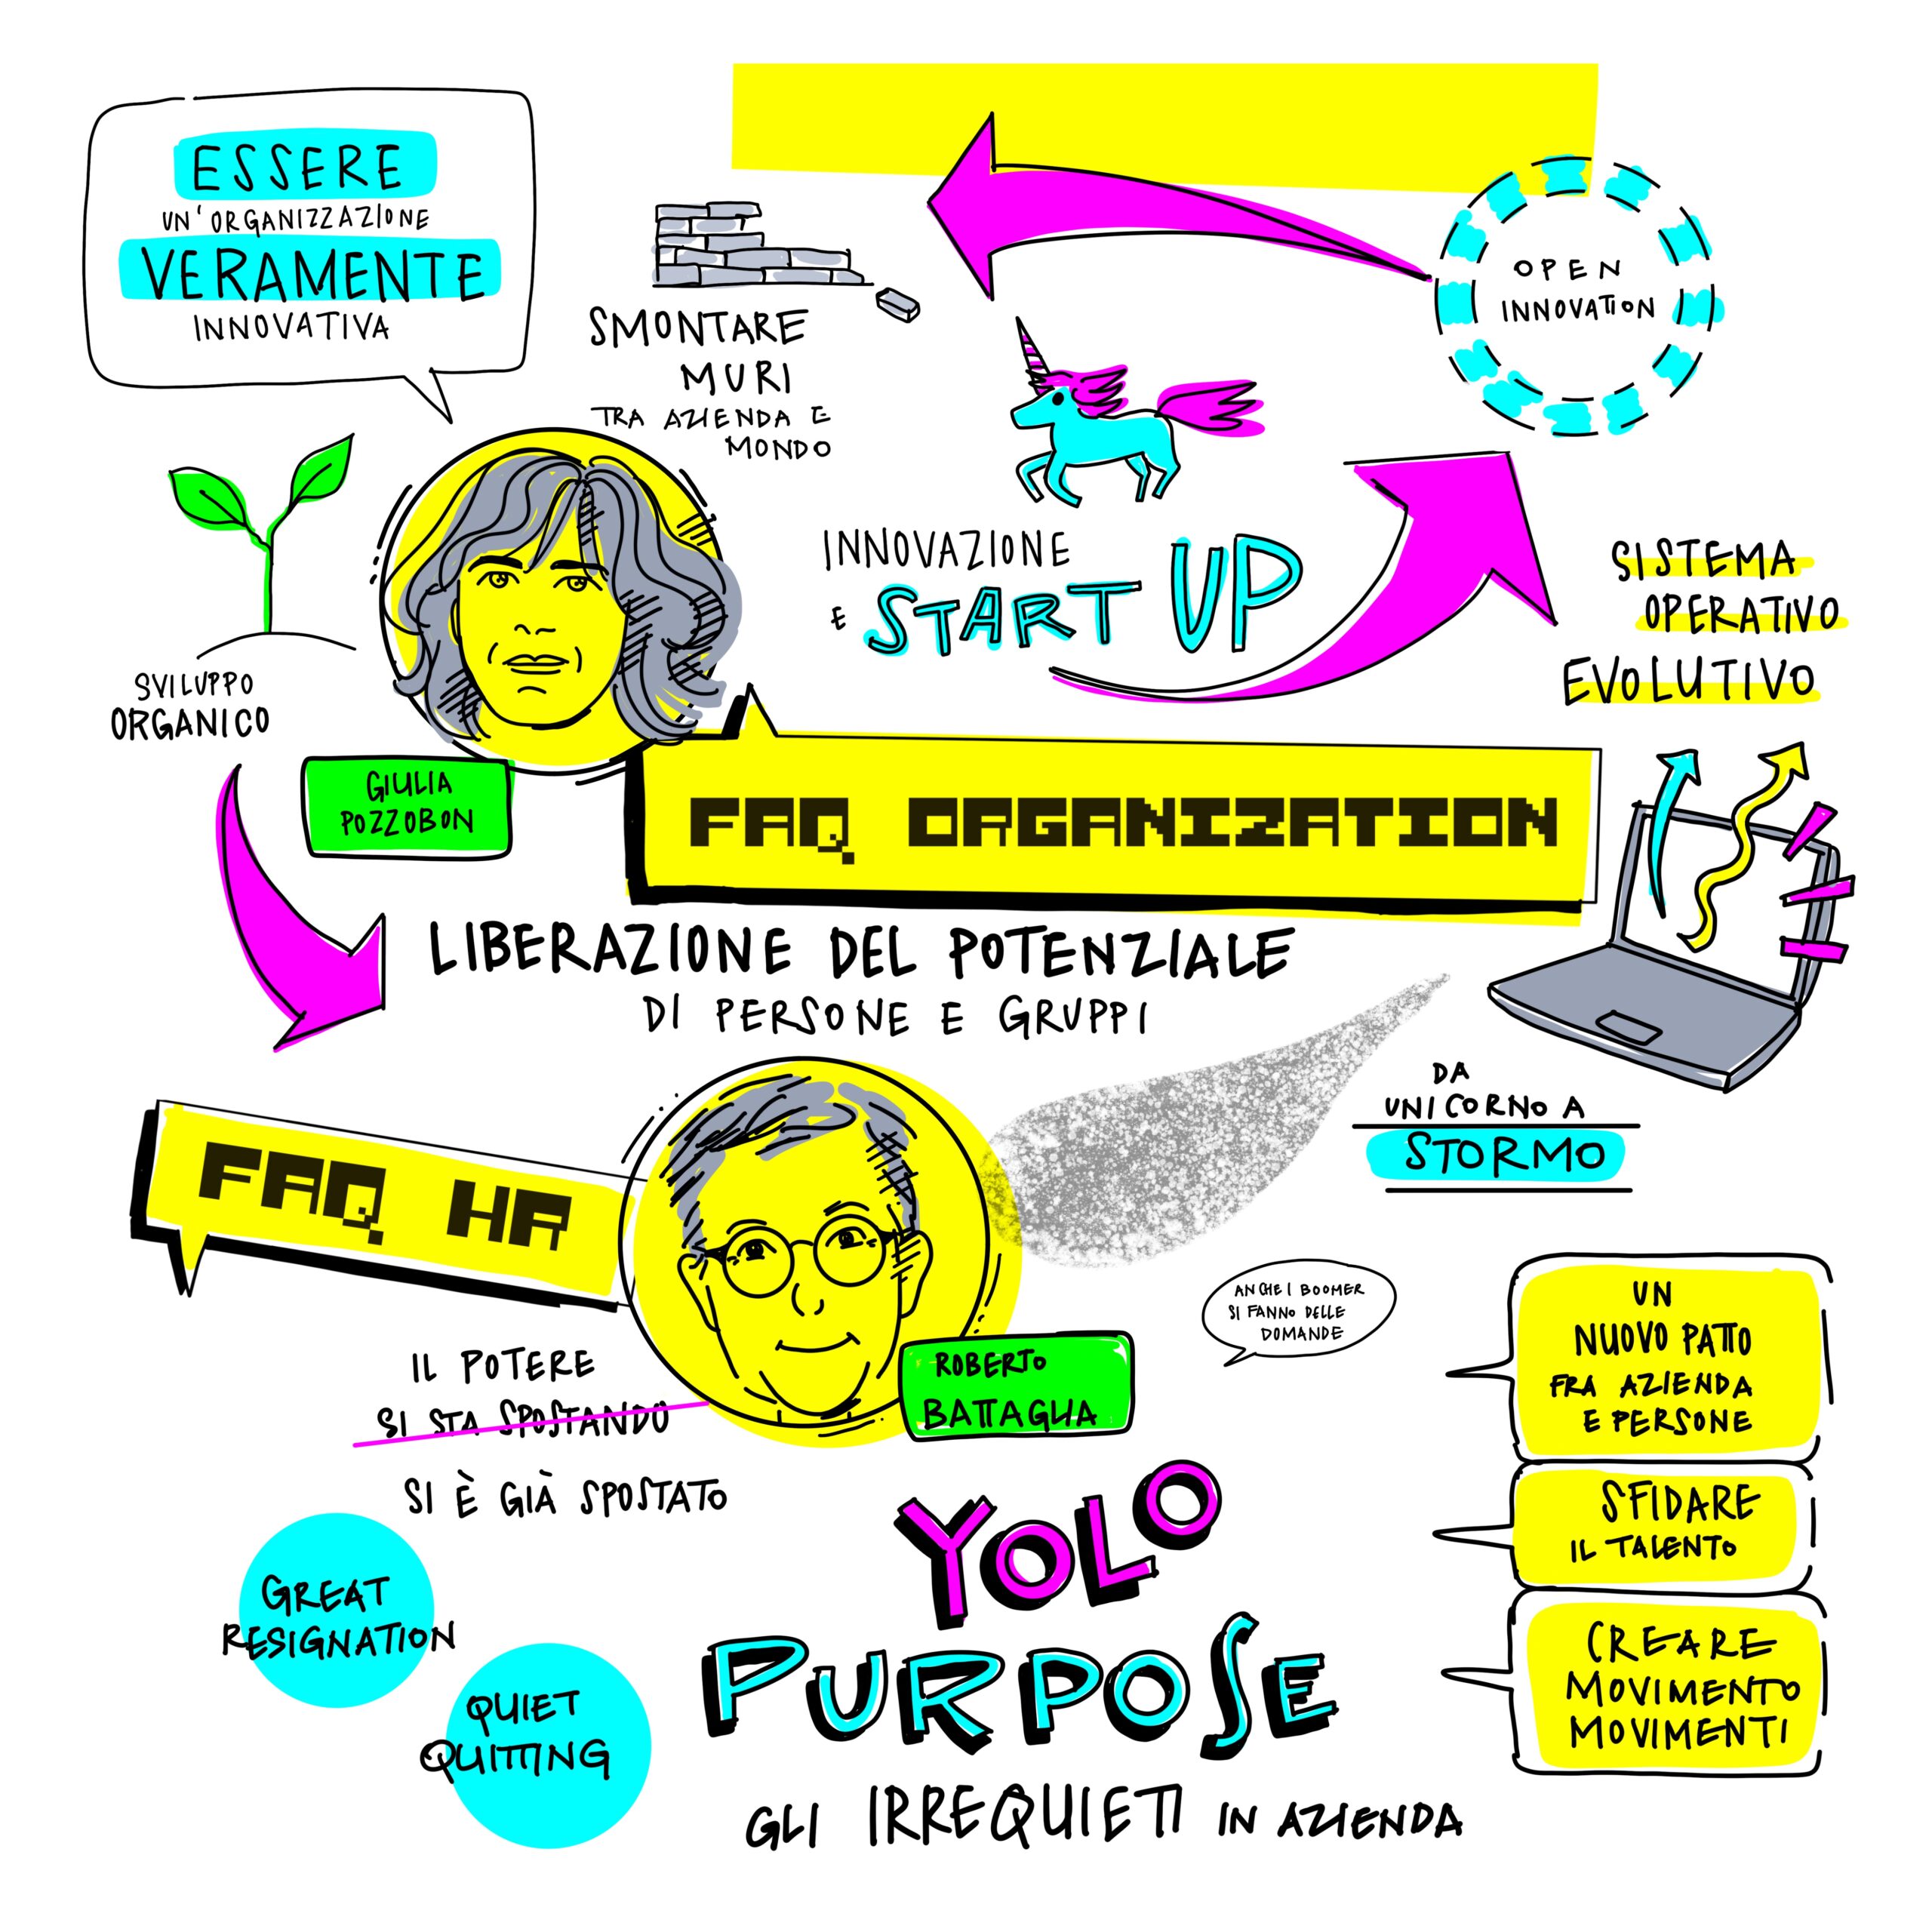 ESSERE
UN'ORGANIZZAZIONE
VERAMENTE
INNOVATIVA
SMONTARE
MURI
TRA AZIENDA E
MONDO
OPEN
INNOVATION
INNOVAZIONE
E START UP
SISTEMA
OPERATIVO
EVOLUTIVO
SVILUPPO
ORGANICO
GIULIA
POZZOBON
FAQ ORGANIZATION
LIBERAZIONE DEL POTENZIALE
DI PERSONE E GRUPPI
DA
UNICORNO A
STORMO
FAQ HR
ANCHE I BOOMER
SI FANNO DELLE
DOMANDE
ROBERTO
BATTAGLIA
IL POTERE
SI STA SPOSTANDO
SI È GIÀ SPOSTATO
UN
NUOVO PATTO
FRA AZIENDA
E PERSONE
SFIDARE
IL TALENTO
CREARE
MOVIMENTO
MOVIMENTI
GREAT
RESIGNATION
QUIET
QUITTING
YOLO
PURPOSE
GLI IRREQUIETI IN AZIENDA